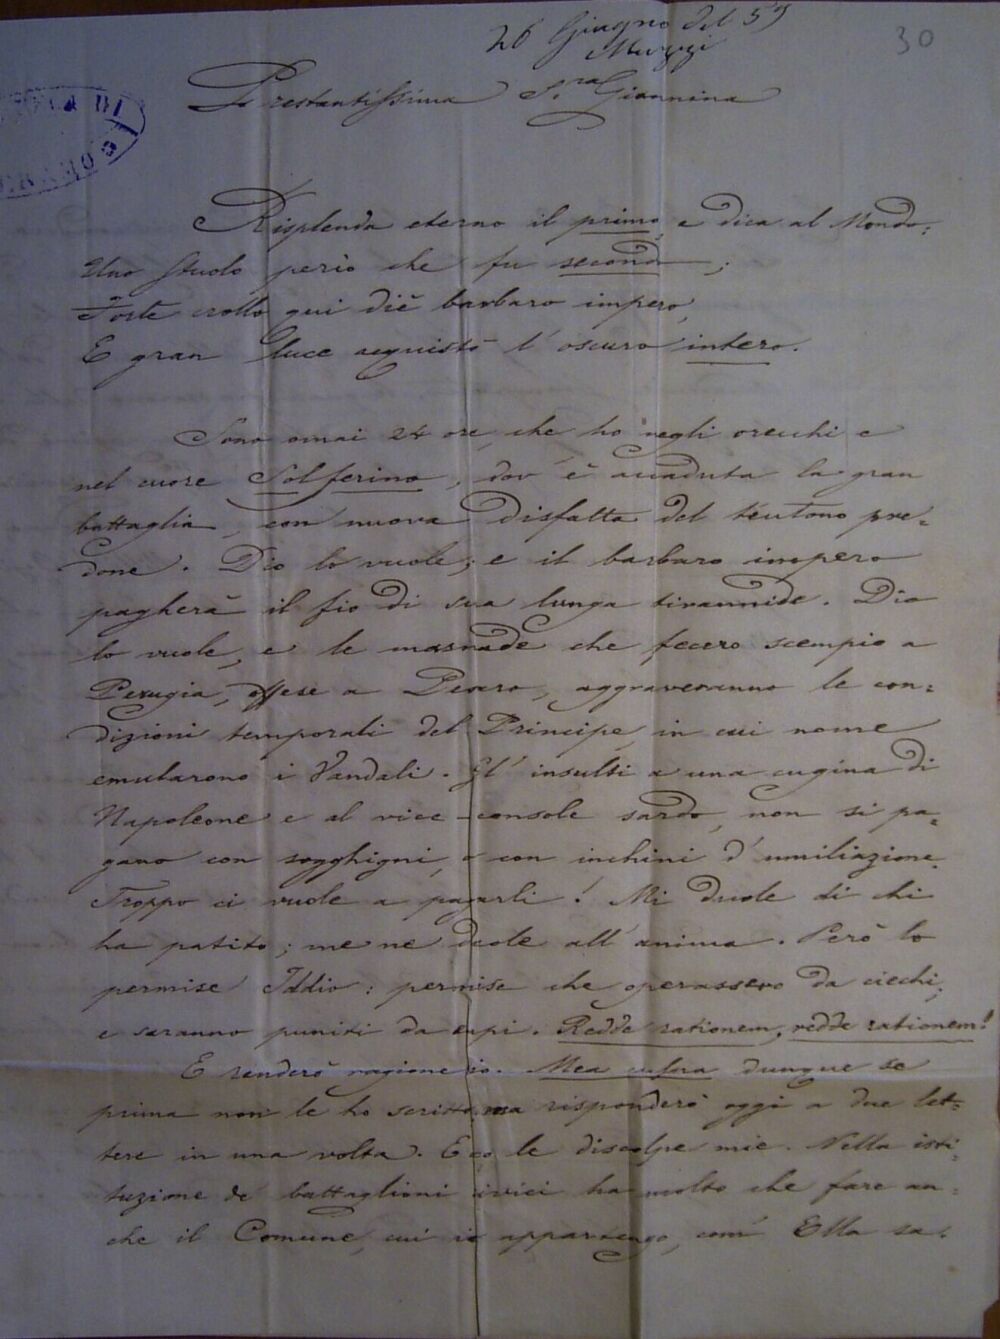 26 Giugno del 59
Muzzi
30
Prestantissima S.ra Giannina
Risplenda eterno il primo, e dica al Mondo:
Uno stuolo perìo che fu secondo;
Forte crollo qui diè barbaro impero,
E gran luce acquistò l'oscuro intero.
Sono omai 24 ore, che ho negli orecchi e
nel cuore Solferino, dov'è accaduta la gran
battaglia, con nuova disfatta del teutono pre=
done. Dio lo vuole; e il barbaro impero
pagherà il fio di sua lunga tirannide. Dio
lo vuole, e le masnade che fecero scempio a
Perugia, offese a Pesaro, aggraveranno le con=
dizioni temporali del Principe, in cui nome
emularono i Vandali. Gl'insulti a una cugina di
Napoleone e al vice-console sardo, non si pa=
gano con sogghigni, o con inchini d'umiliazione.
Troppo ci vuole a pagarli! Mi duole di chi
ha patito; me ne duole all'anima. Però lo
permise Iddio: permise che operassero da ciechi;
e saranno puniti da empi. Redde rationem, redde rationem!
E renderò ragione io. Mea culpa dunque se
prima non le ho scritto, ma risponderò oggi a due let=
tere in una volta. Ecco le discolpe mie. Nella isti=
tuzione de' battaglioni civici ha molto che fare an=
che il Comune, cui io appartengo, com' Ella sa.